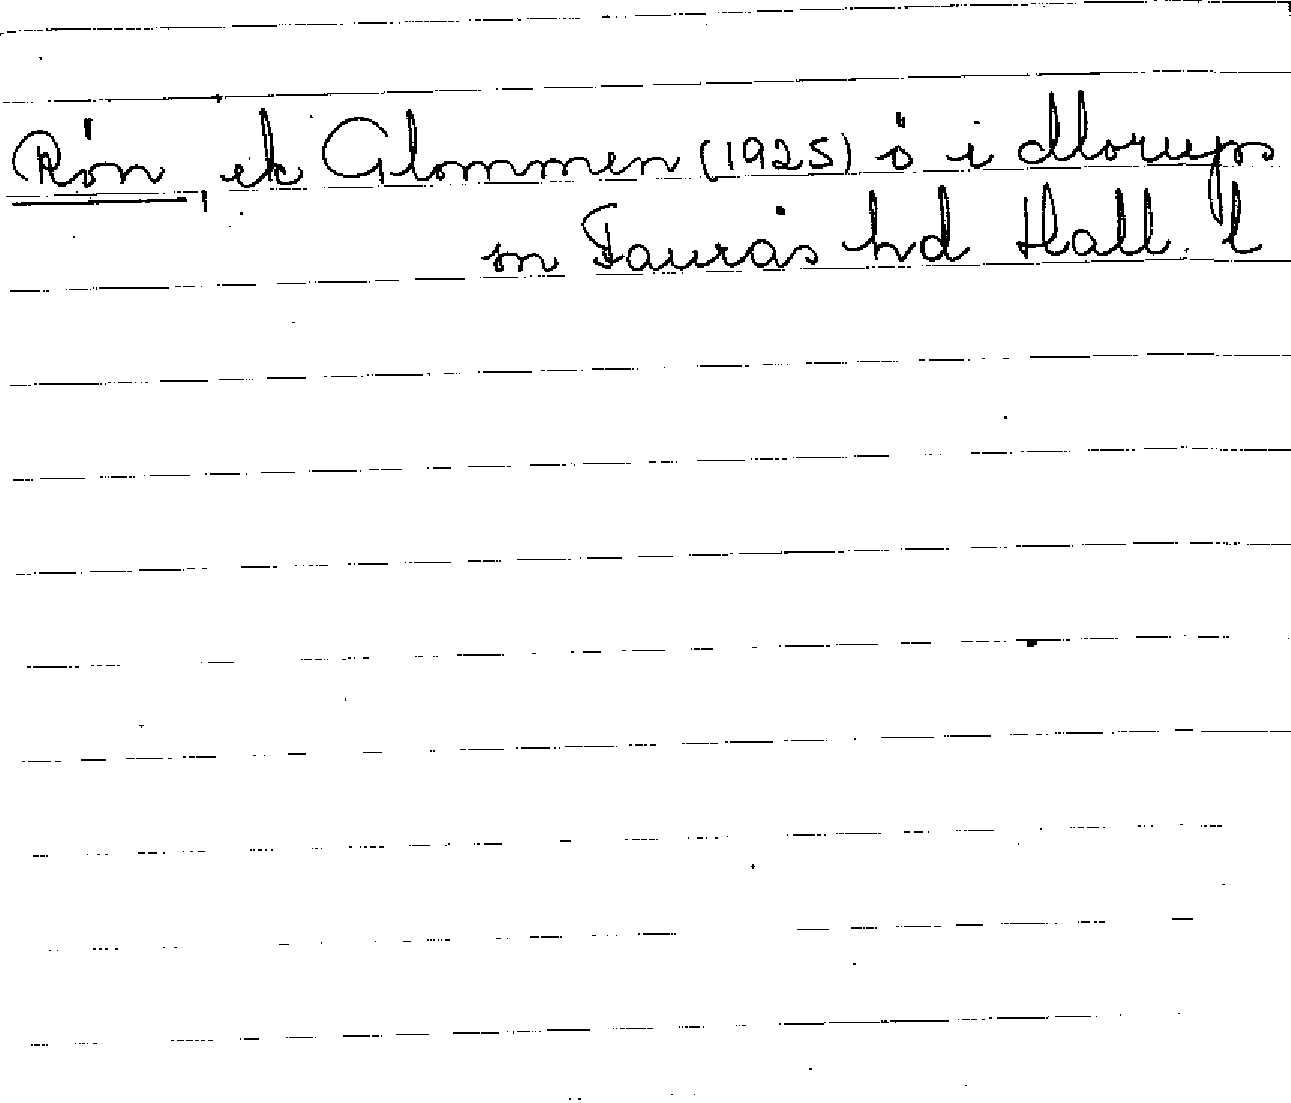 Rön, ek Glommen (1925) ö i Morups
sn Faurås hd Hall. l